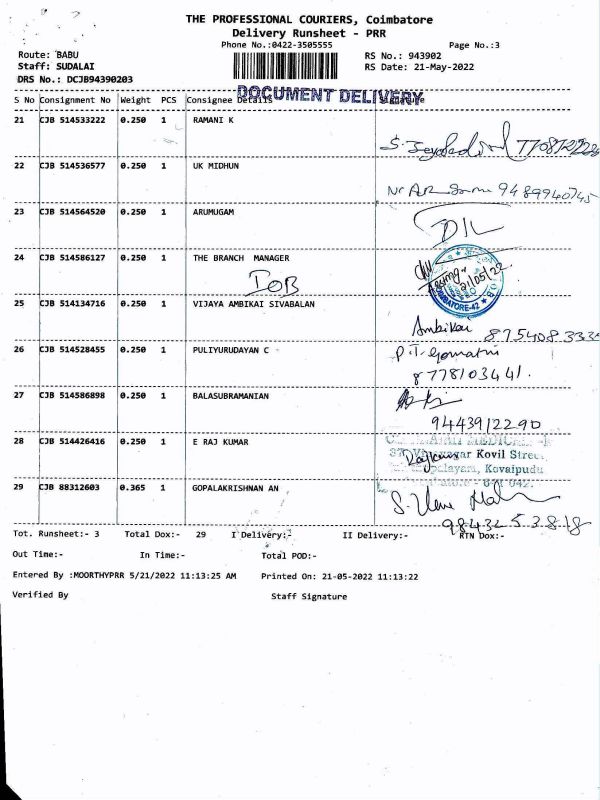 THE PROFESSIONAL COURIERS, Coimbatore
Delivery Runsheet - PRR
Phone No.:0422-3505555
Page No.:3
Route: BABU
RS No.: 943902
Staff: SUDALAI
RS Date: 21-May-2022
DRS No.: DCJB94390203
DOCUMENT DELIVERY
S No Consignment No Weight PCS Consignee Details Signature
21 CJB 514533222 0.250 1 RAMANI K
22 CJB 514536577 0.250 1 UK MIDHUN
9489940745
23 CJB 514564520 0.250 1 ARUMUGAM
DIL
24 CJB 514586127 0.250 1 THE BRANCH MANAGER
IOB
21/05/22
25 CJB 514134716 0.250 1 VIJAYA AMBIKAI SIVABALAN
Ambikai 875408333
26 CJB 514528455 0.250 1 PULIYURUDAYAN C
P.T. Gomathi
8778103441.
27 CJB 514586898 0.250 1 BALASUBRAMANIAN
9443912290
28 CJB 514426416 0.250 1 E RAJ KUMAR
Rajkumar
Kovil Street,
Kovaipudu
29 CJB 88312603 0.365 1 GOPALAKRISHNAN AN
9843253818
Tot. Runsheet:- 3 Total Dox:- 29 I Delivery:- II Delivery:- RTN Dox:-
Out Time:- In Time:- Total POD:-
Entered By :MOORTHYPRR 5/21/2022 11:13:25 AM Printed On: 21-05-2022 11:13:22
Verified By Staff Signature